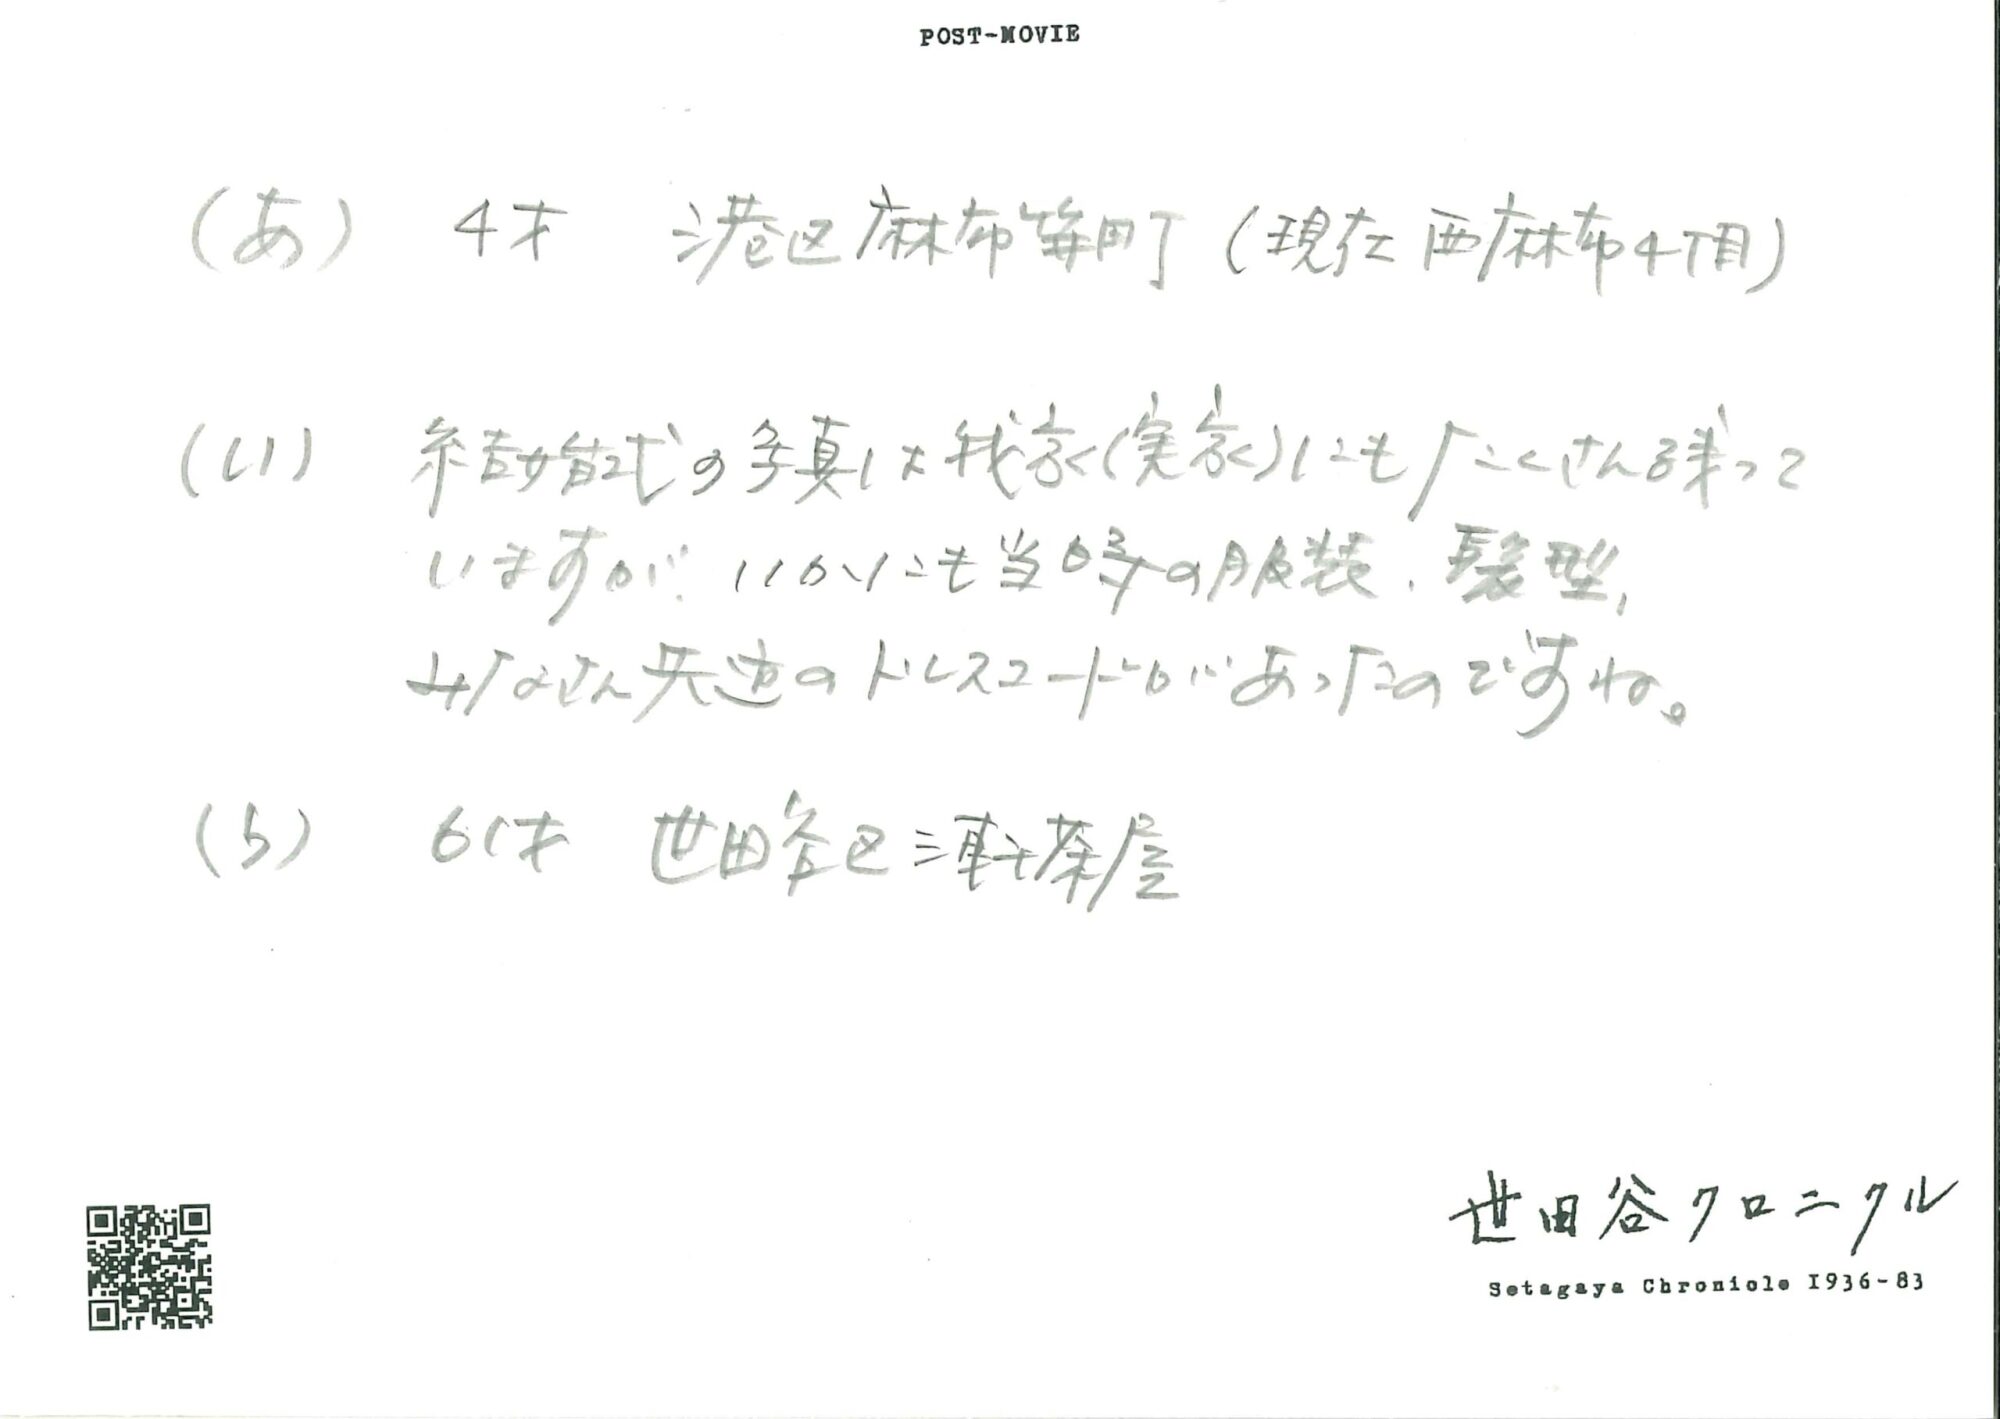 POST-MOVIE
(あ) 4才 港区麻布笄町(現在西麻布4丁目)
(い) 結婚式の写真は我家(実家)にもたくさん残って
いますが、いかにも当時の服装、髪型、
みなさん共通のドレスコードがあったのですね。
(う) 61才 世田谷区三軒茶屋
世田谷クロニクル
Setagaya Chronicle 1936-83